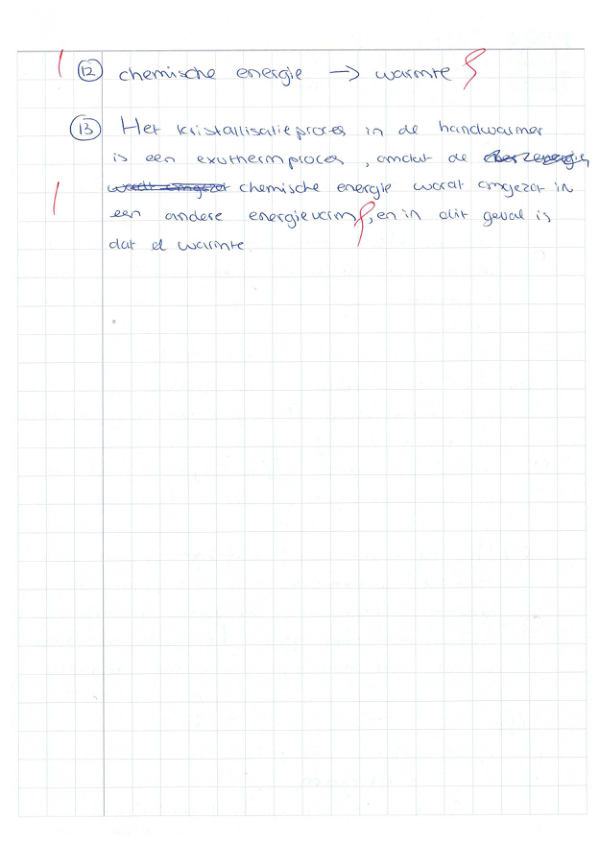 1 12 chemische energie → warmte
13 Het kristallisatieproces in de handwarmer
is een exothermproces, omdat de
1 chemische energie wordt omgezet in
een andere energievorm, en in dit geval is
dat d warmte